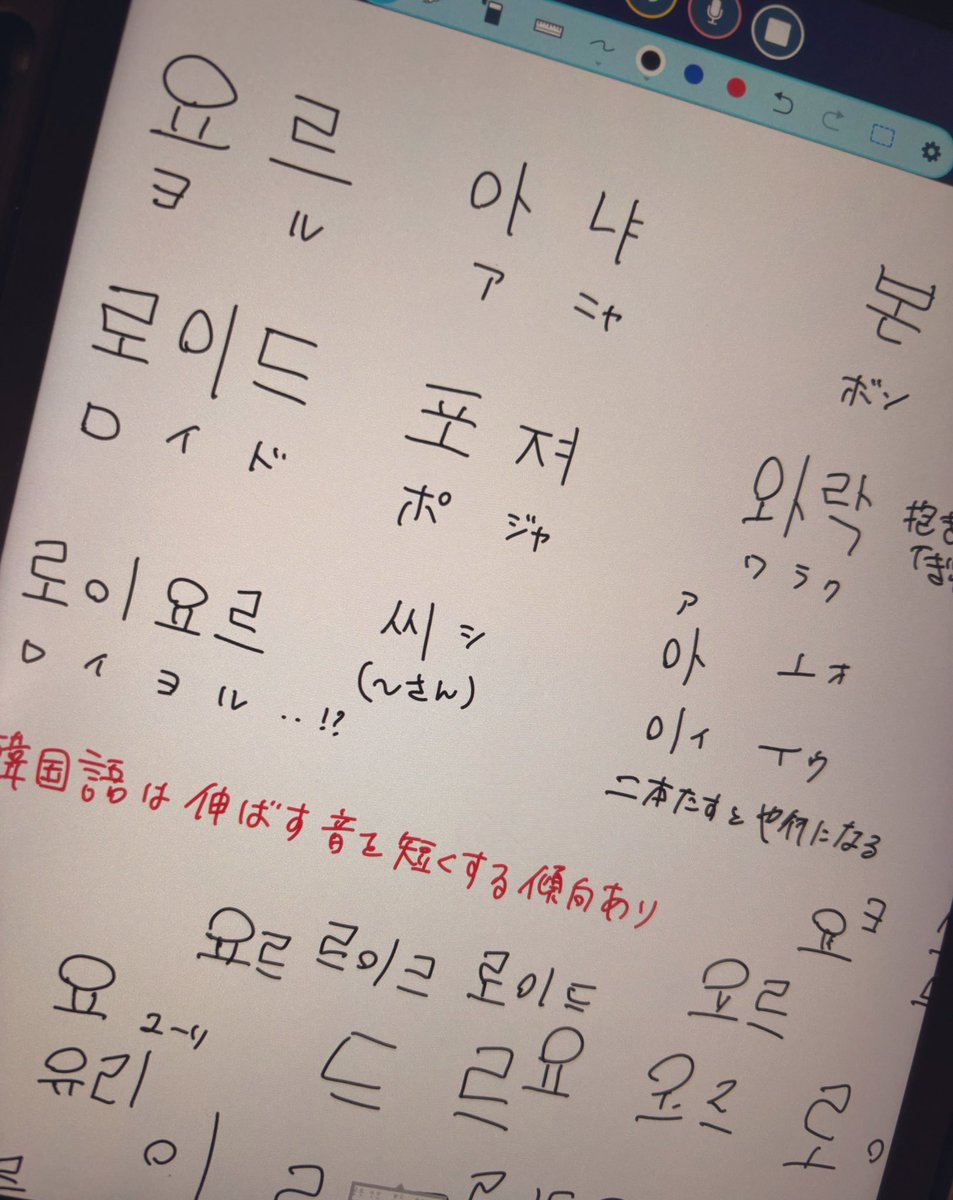 요르
ヨ ル
아 냐
ア ニャ
본
ボン
로이드
ロ イ ド
포 져
ポ ジャ
와락
ワ ラ ク
抱き
로이요르
ロ イ ヨ ル ‥!?
씨 シ
(〜さん)
ア
아 ㅗ オ
이 イ ㅜ ウ
二本たすとや行になる
韓国語は伸ばす音を短くする傾向あり
요 ヨ
요르 르이크 로이드 요르
요
ユーリ
유리
드 르 요 요르
이